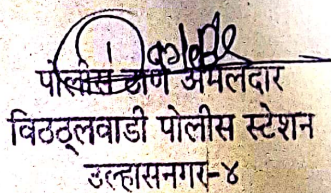 पोलीस ठाणे अंमलदार
विठठ्लवाडी पोलीस स्टेशन
उल्हासनगर-४